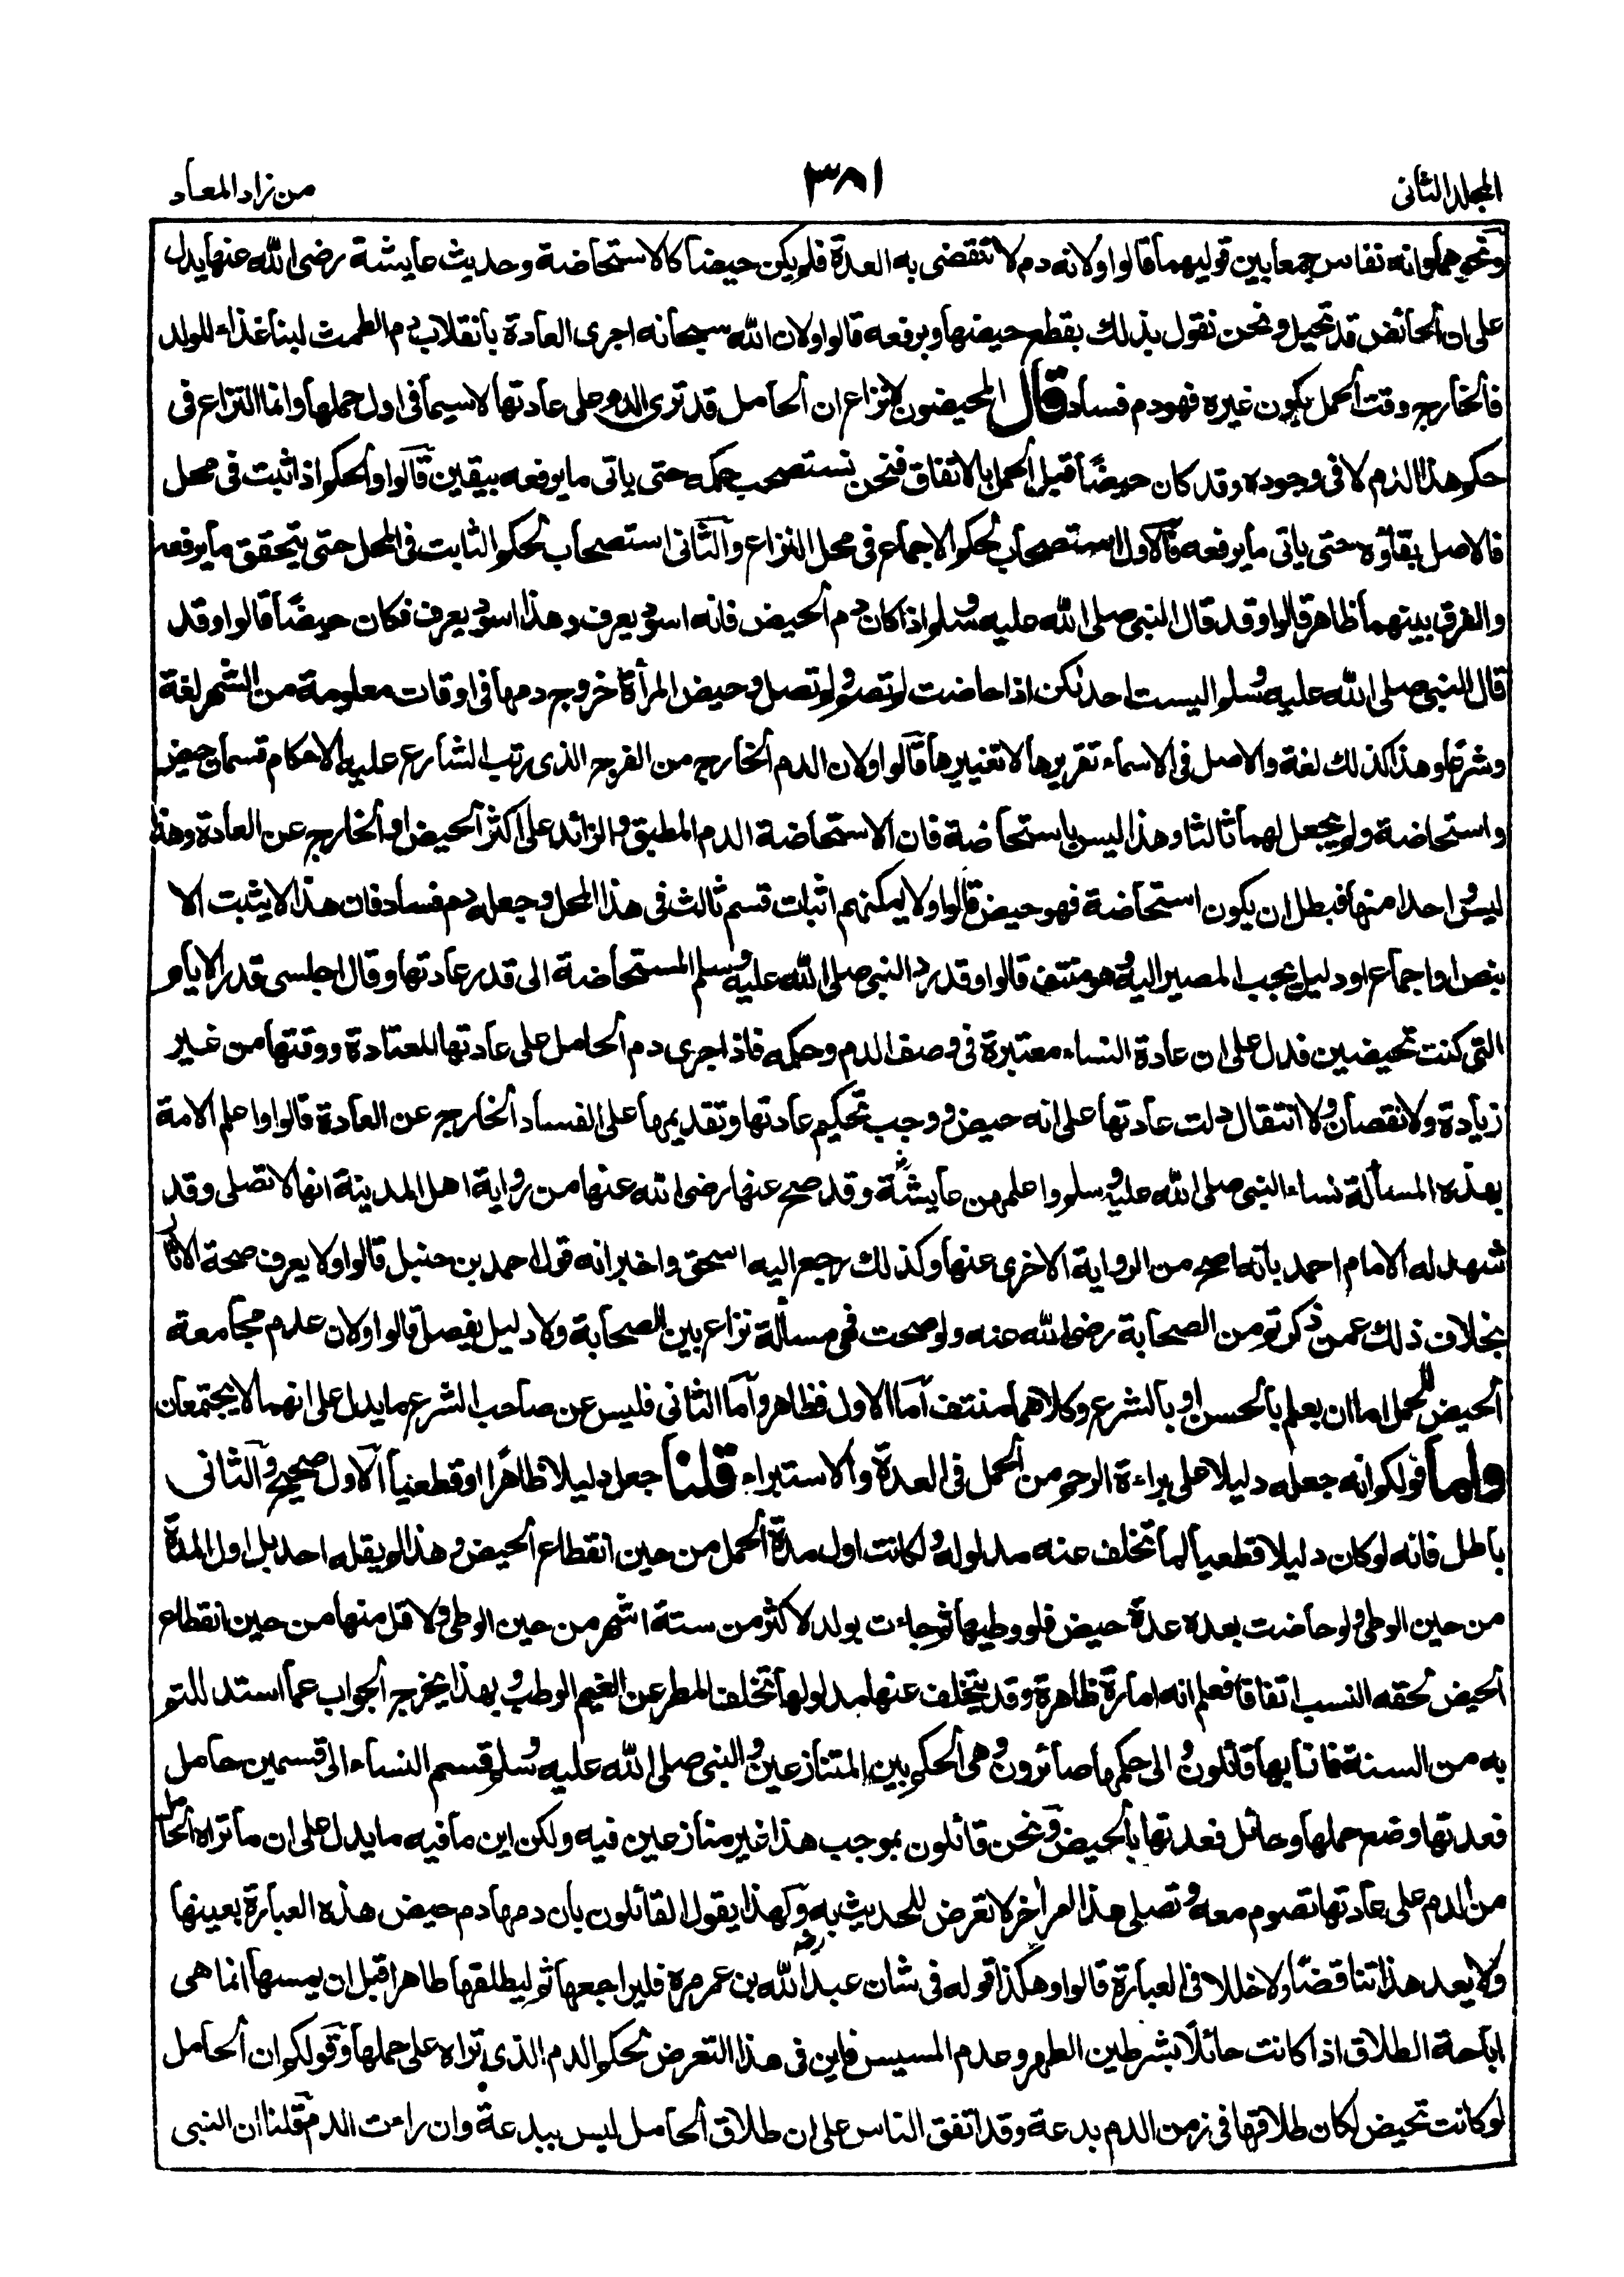 المجلد الثانى
٣٨١
من زاد المعاد
ونحوهما وانه نفاس جمعا بين قوليهما قالوا ولانه دم لا تنقضى به العدة فلم يكن حيضا كالاستحاضة وحديث عايشة رضى الله عنها يدل
على ان الحائض قد تحبل ونحن نقول بذلك بقطع حيضها وبرفعه قالوا ولان الله سبحانه اجرى العادة بانقلاب دم الطمث لبنا غذاء للولد
فالخارج وقت الحمل يكون غيره فهو دم فساد قال المحيضون لا نزاع ان الحامل قد ترى الدم على عادتها لا سيما فى اول حملها وانما النزاع فى
حكم هذا الدم لا فى وجوده وقد كان حيضًا قبل الحمل بالاتفاق فنحن نستصحب حكمه حتى ياتى ما يرفعه بيقين قالوا والحكم اذا ثبت فى محل
فالاصل بقاؤه حتى ياتى ما يرفعه فالاول استصحاب لحكم الاجماع فى محل النزاع والثانى استصحاب لحكم الثابت فى المحل حتى يتحقق ما يرفعه
والفرق بينهما ظاهر قالوا وقد قال النبى صلى الله عليه وسلم اذا كان دم الحيض فانه اسود يعرف وهذا اسود يعرف فكان حيضًا قالوا وقد
قال النبى صلى الله عليه وسلم اليست احدٰكن اذا حاضت لم تصم ولم تصل وحيض المرأة خروج دمها فى اوقات معلومة من الشهر لغة
وشرعًا وهذا كذلك لغة والاصل فى الاسماء تقريرها لا تغييرها قالوا ولان الدم الخارج من الفرج الذى رتب الشارع عليه الاحكام قسمان حيض
واستحاضة ولم يجعل لهما ثالثا وهذا ليس باستحاضة فان الاستحاضة الدم المطبق والزائد على اكثر الحيض او الخارج عن العادة وهذا
ليس واحدا منها فبطل ان يكون استحاضة فهو حيض قالوا ولا يمكنهم اثبات قسم ثالث فى هذا المحل وجعله دم فساد فان هذا لا يثبت الا
بنص او اجماع او دليل يجب المصير اليه وهو منتف قالوا وقد رد النبى صلى الله عليه وسلم المستحاضة الى قدر عادتها وقال اجلسى قدر الايام
التى كنت تحيضين فدل على ان عادة النساء معتبرة فى وصف الدم وحكمه فاذا جرى دم الحامل على عادتها المعتادة ووقتها من غير
زيادة ولا نقصان ولا انتقال دلت عادتها على انه حيض ووجب تحكيم عادتها وتقديمها على الفساد الخارج عن العادة قالوا واعلم الامة
بهذه المسألة نساء النبى صلى الله عليه وسلم واعلمهن عايشة وقد صح عنها رضى الله عنها من رواية اهل المدينة انها لا تصلى وقد
شهد له الامام احمد بانه اصح من الرواية الاخرى عنها وكذلك رجع اليه اسحق واخبر انه قول احمد بن حنبل قالوا ولا يعرف صحة الاثار
بخلاف ذلك عمن ذكرتم من الصحابة رضى الله عنه ولو صحت فهى مسألة نزاع بين الصحابة ولا دليل يفصل قالوا ولان عدم مجامعة
الحيض للحمل اما ان يعلم بالحس او بالشرع وكلاهما منتف اما الاول فظاهر واما الثانى فليس عن صاحب الشرع ما يدل على انهما لا يجتمعان
واما قولكم انه جعله دليلا على براءة الرحم من الحمل فى العدة والاستبراء قلنا جعل دليلا ظاهرًا او قطعيا الاول صحيح والثانى
باطل فانه لو كان دليلا قطعيا لما تخلف عنه مدلوله ولكانت اول مدة الحمل من حين انقطاع الحيض وهذا لم يقله احد بل اول المدة
من حين الوطى ولو حاضت بعده عدة حيض فلو وطيها ثم جاءت بولد لاكثر من ستة اشهر من حين الوطى ولاقل منها من حين انقطاع
الحيض لحقه النسب اتفاقا فعلم انه امارة ظاهرة وقد يتخلف عنها مدلولها تخلف المطر عن الغيم الوطب وبهذا يخرج الجواب عما استدللتم
به من السنة فانا بها قائلون والى حكمها صائرون وهى الحكم بين المتنازعين والنبى صلى الله عليه وسلم قسم النساء الى قسمين حامل
فعدتها وضع حملها وحائل فعدتها بالحيض ونحن قائلون بموجب هذا غير منازعين فيه ولكن اين ما فيه ما يدل على ان ما تراه الحامل
من الدم على عادتها تصوم معه وتصلى هذا امر اٰخر لا تعرض للحديث به ولهذا يقول القائلون بان دمها دم حيض هذه العبارة بعينها
ولا يعد هذا تناقضًا ولا خللا فى العبارة قالوا وهكذا قوله فى شان عبد الله بن عمر رض مره فليراجعها ثم ليطلقها طاهرا قبل ان يمسها انما هى
اباحة الطلاق اذا كانت حائلًا بشرطين الطهر وعدم المسيس فاين فى هذا التعرض لحكم الدم الذى تراه على حملها وقولكم ان الحامل
لو كانت تحيض لكان طلاقها فى زمن الدم بدعة وقد اتفق الناس على ان طلاق الحامل ليس ببدعة وان راءت الدم قلنا ان النبى